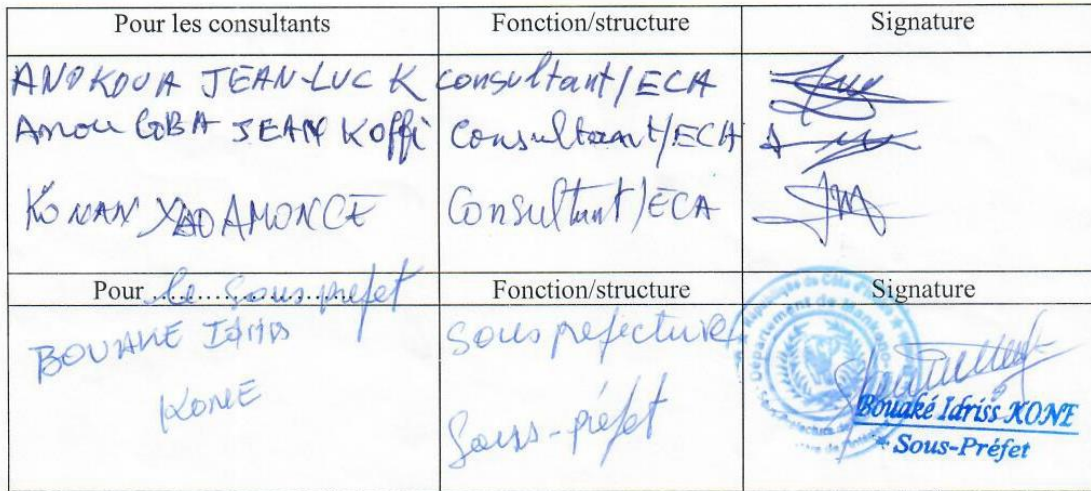 Pour les consultants Fonction/structure Signature
ANOKOUA JEAN-LUC K consultant/ECA
Amou GBA JEAN Koffi Consultant/ECA
KONAN YAO AMONCE Consultant/ECA
Pour le sous prefet Fonction/structure Signature
BOUAKE Idriss Sous prefecture
KONE
Sous-préfet
République de Côte d'Ivoire
Département de Mankono
Bouaké Idriss KONE
Sous-Préfet